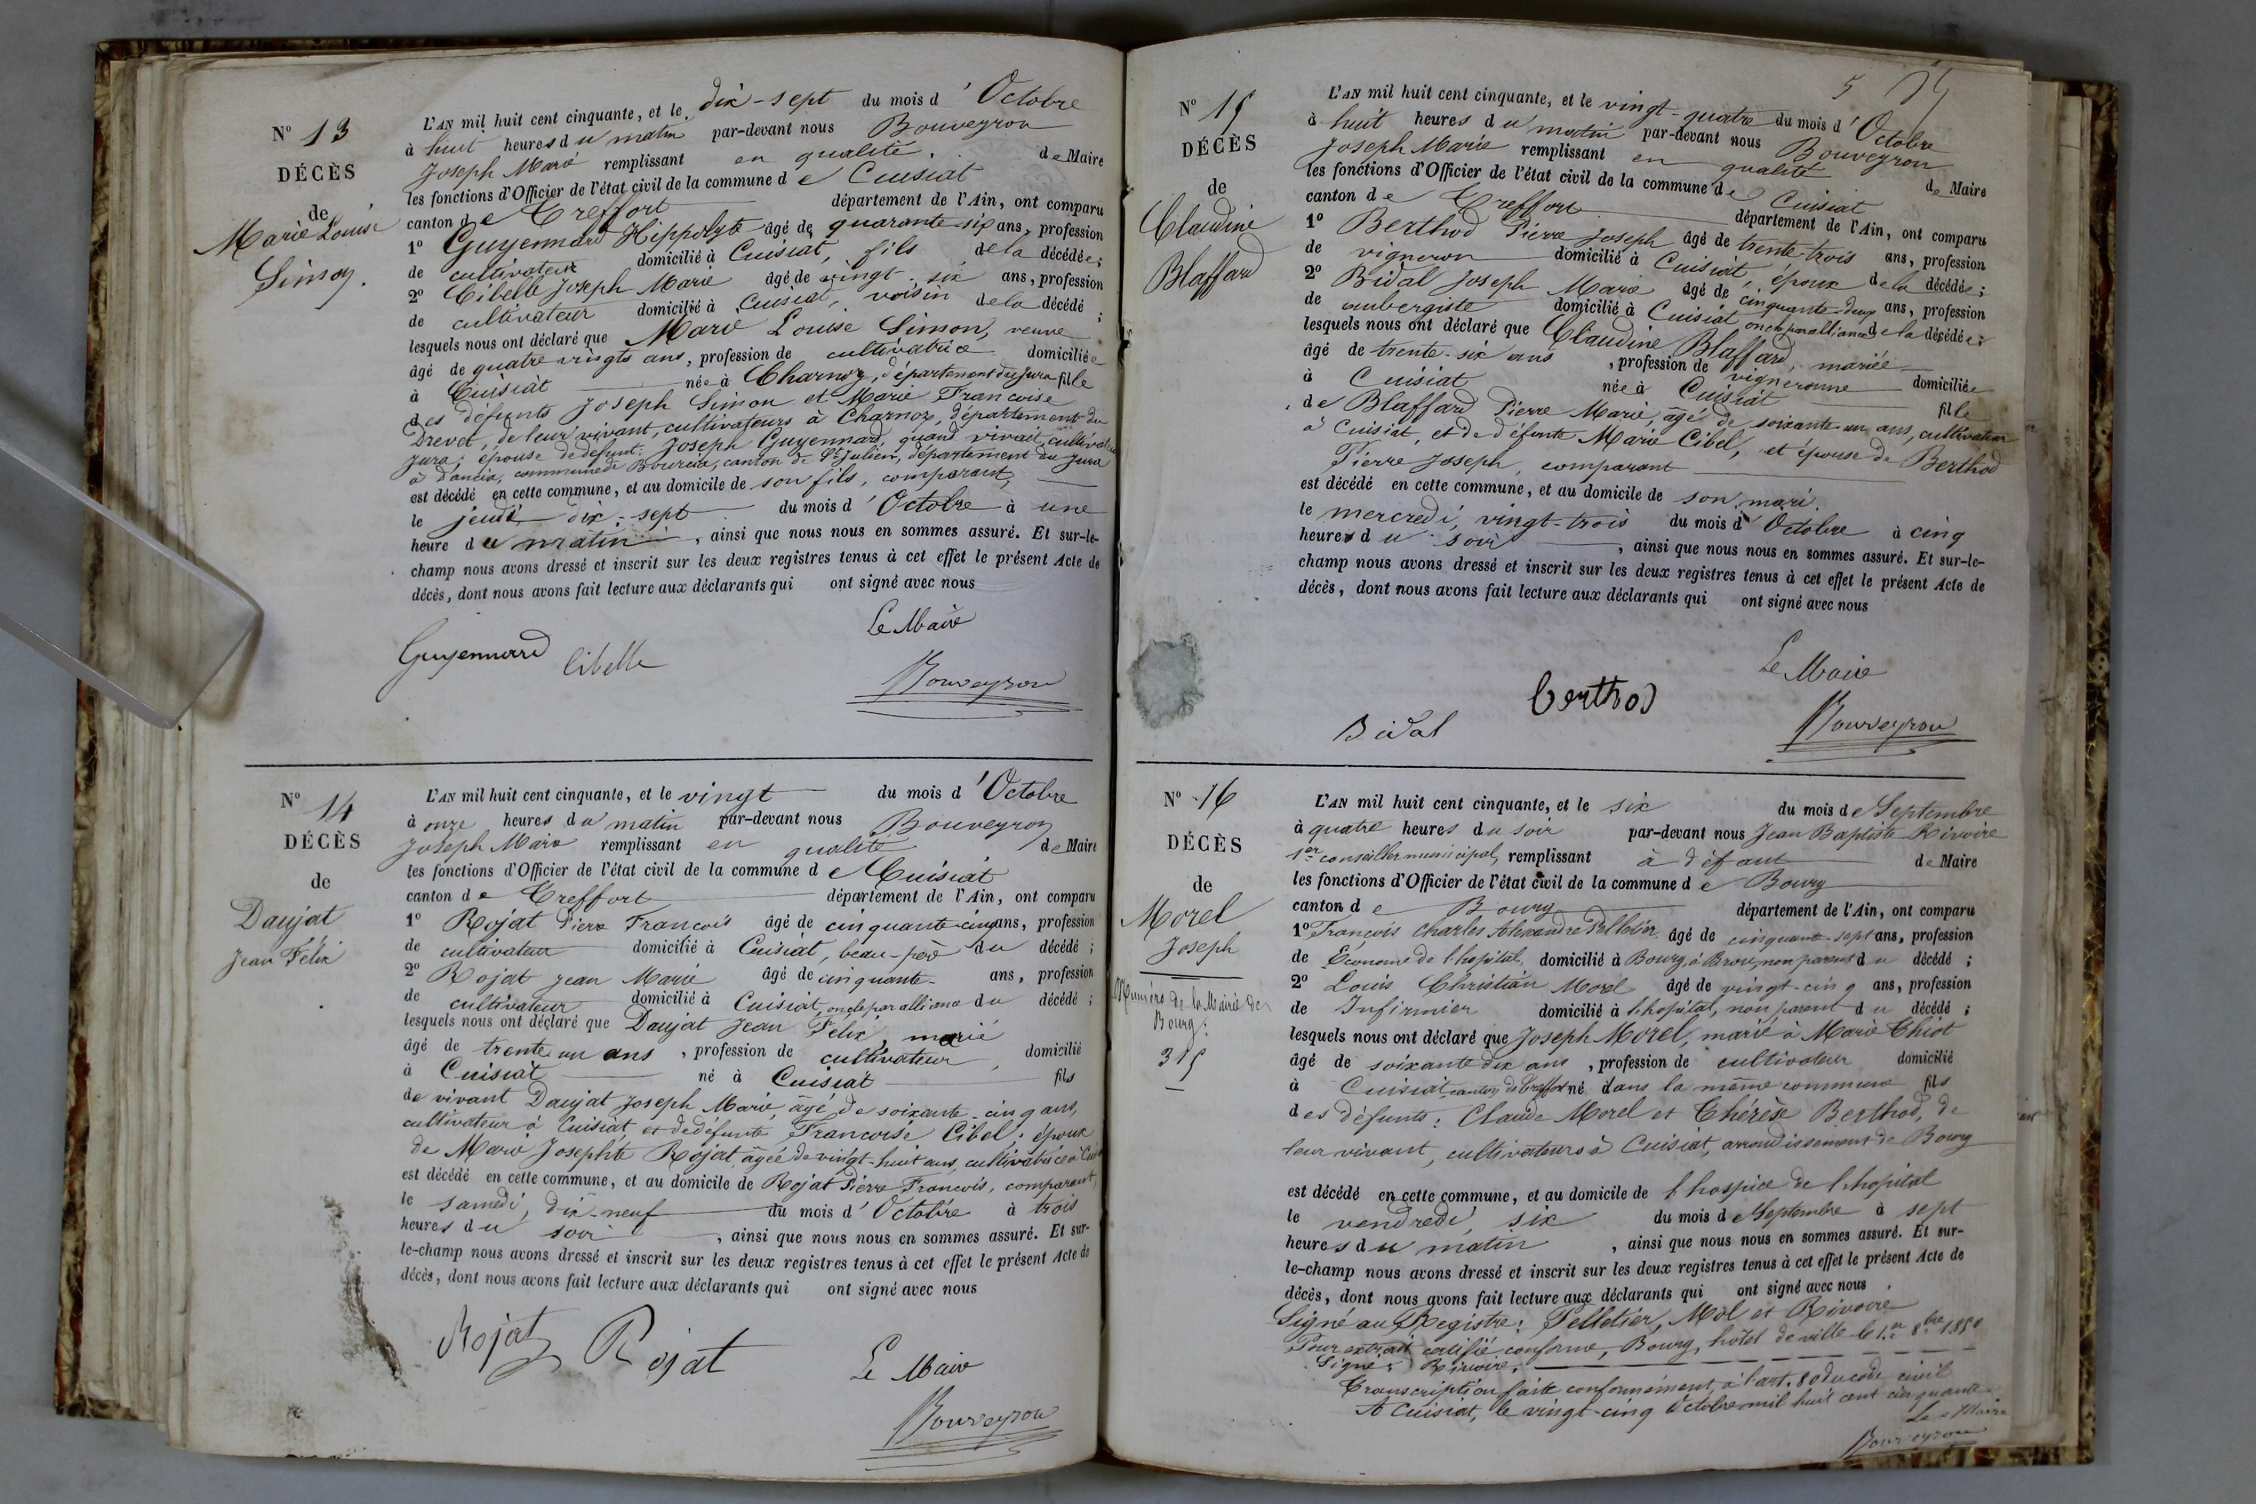 N° 13
DÉCÈS
de
Marie Louise
Simon.
L'AN mil huit cent cinquante, et le dix-sept du mois d'Octobre
à huit heures du matin par-devant nous Bouveyron
Joseph Marie remplissant en qualité de Maire
les fonctions d'Officier de l'état civil de la commune de Cuisiat
canton de Treffort département de l'Ain, ont comparu
1° Guyennard Hippolyte âgé de quarante-six ans, profession
de cultivateur domicilié à Cuisiat, fils de la décédée;
2° Cibelle Joseph Marie âgé de vingt-six ans, profession
de cultivateur domicilié à Cuisiat, voisin de la décédé;
lesquels nous ont déclaré que Marie Louise Simon, veuve
âgé de quatre vingts ans, profession de cultivatrice domiciliée
à Cuisiat née à Charnoz, département du Jura fille
des défunts Joseph Simon et Marie Françoise
Drevet, de leur vivant, cultivateurs à Charnoz, département du
Jura; épouse de défunt Joseph Guyennard, quand vivait, cultivateur
à Dancia, commune de Bourcia, canton de St Julien, département du Jura
est décédé en cette commune, et au domicile de son fils, comparant,
le jeudi dix-sept du mois d'Octobre à une
heure du matin, ainsi que nous nous en sommes assuré. Et sur-le-
champ nous avons dressé et inscrit sur les deux registres tenus à cet effet le présent Acte de
décès, dont nous avons fait lecture aux déclarants qui ont signé avec nous
Le Maire
Guyennard Cibelle
Bouveyron
N° 14
DÉCÈS
de
Daujat
Jean Félix
L'AN mil huit cent cinquante, et le vingt du mois d'Octobre
à onze heures du matin par-devant nous Bouveyron
Joseph Marie remplissant en qualité de Maire
les fonctions d'Officier de l'état civil de la commune de Cuisiat
canton de Treffort département de l'Ain, ont comparu
1° Rojat Pierre François âgé de cinquante-cinq ans, profession
de cultivateur domicilié à Cuisiat, beau-père du décédé;
2° Rojat Jean Marie âgé de cinquante ans, profession
de cultivateur domicilié à Cuisiat, oncle par alliance du décédé;
lesquels nous ont déclaré que Daujat Jean Félix, marié
âgé de trente un ans, profession de cultivateur, domicilié
à Cuisiat né à Cuisiat fils
de vivant Daujat Joseph Marie, âgé de soixante-cinq ans,
cultivateur à Cuisiat, et de défunte Françoise Cibel; époux
de Marie Josephte Rojat, âgée de vingt-huit ans, cultivatrice à
est décédé en cette commune, et au domicile de Rojat Pierre François, comparant,
le samedi, dix-neuf du mois d'Octobre à trois
heures du soir, ainsi que nous nous en sommes assuré. Et sur-
le-champ nous avons dressé et inscrit sur les deux registres tenus à cet effet le présent Acte de
décès, dont nous avons fait lecture aux déclarants qui ont signé avec nous
Rojat Rojat
Le Maire
Bouveyron
5
N° 15
DÉCÈS
de
Claudine
Blaffard
L'AN mil huit cent cinquante, et le vingt-quatre du mois d'Octobre
à huit heures du matin par-devant nous Bouveyron
Joseph Marie remplissant en qualité de Maire
les fonctions d'Officier de l'état civil de la commune de Cuisiat
canton de Treffort département de l'Ain, ont comparu
1° Berthod Pierre Joseph âgé de trente-trois ans, profession
de vigneron domicilié à Cuisiat époux de la décédée;
2° Bidal Joseph Marie âgé de cinquante-deux ans, profession
de aubergiste domicilié à Cuisiat oncle par alliance de la décédée;
lesquels nous ont déclaré que Claudine Blaffard, mariée
âgé de trente-six ans, profession de vigneronne domiciliée
à Cuisiat née à Cuisiat fille
de Blaffard Pierre Marie, âgé de soixante un ans, cultivateur
à Cuisiat, et de défunte Marie Cibel, et épouse de Berthod
Pierre Joseph, comparant
est décédé en cette commune, et au domicile de son mari.
le mercredi, vingt-trois du mois d'Octobre à cinq
heures du soir, ainsi que nous nous en sommes assuré. Et sur-le-
champ nous avons dressé et inscrit sur les deux registres tenus à cet effet le présent Acte de
décès, dont nous avons fait lecture aux déclarants qui ont signé avec nous
Le Maire
Berthod
Bidal
Bouveyron
N° 16
DÉCÈS
de
Morel
Joseph
Numéro de la Mairie de
Bourg:
315
L'AN mil huit cent cinquante, et le six du mois de Septembre
à quatre heures du soir par-devant nous Jean Baptiste Rivoire
1er conseiller municipal, remplissant à défaut de Maire
les fonctions d'Officier de l'état civil de la commune de Bourg
canton de Bourg département de l'Ain, ont comparu
1° François Charles Alexandre Pelletier âgé de cinquante-sept ans, profession
de Économe de l'hopital, domicilié à Bourg, à Brou, non parent du décédé;
2° Louis Christian Morel âgé de vingt-cinq ans, profession
de Infirmier domicilié à l'hopital, non parent du décédé;
lesquels nous ont déclaré que Joseph Morel, marié à Marie Thiot
âgé de soixante dix ans, profession de cultivateur domicilié
à Cuisiat, canton de Treffort né dans la même commune fils
des défunts: Claude Morel et Thérèse Berthod, de
leur vivant, cultivateurs à Cuisiat, arrondissement de Bourg
est décédé en cette commune, et au domicile de l'hospice de l'hopital
le vendredi, six du mois de Septembre à sept
heures du matin, ainsi que nous nous en sommes assuré. Et sur-
le-champ nous avons dressé et inscrit sur les deux registres tenus à cet effet le présent Acte de
décès, dont nous avons fait lecture aux déclarants qui ont signé avec nous.
Signé au Registre: Pelletier, Mol et Rivoire
Pour extrait certifié conforme, Bourg, hôtel de ville le 1er 8bre 1850
Signé: Rivoire.
Transcription faite conformément à l'art. 80 du code civil
A Cuisiat, le vingt-cinq Octobre mil huit cent cinquante
Le Maire
Bouveyron